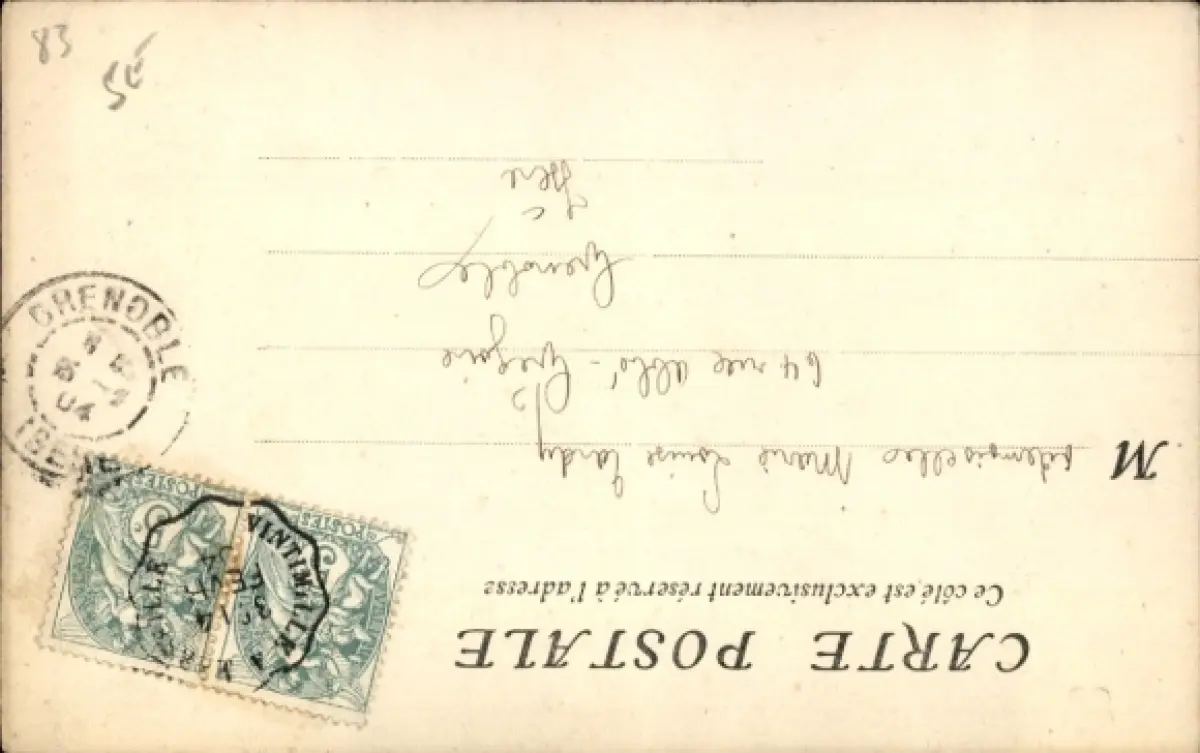 CARTE POSTALE
Ce côté est exclusivement réservé à l'adresse
Mademoiselle Marie Louise Tardy
64 rue abbé-Grégoire
Grenoble
Isère
GRENOBLE
04
ISERE
VINTIMILLE A MARSEILLE
POSTES
POSTES
83
5€